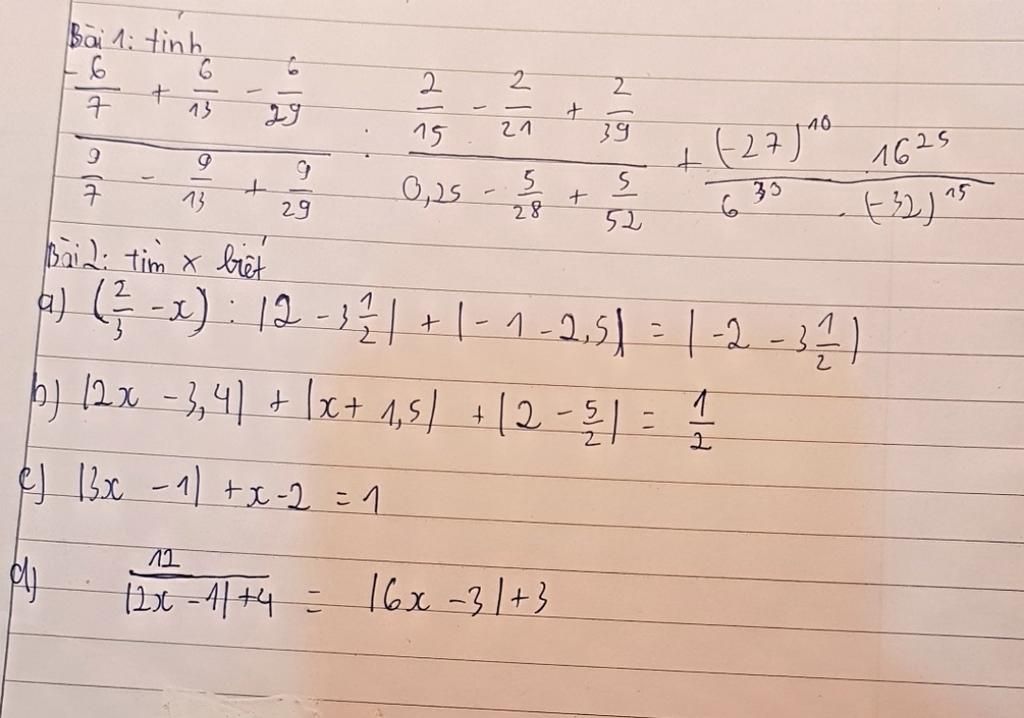 Bài 1: tính
\frac{-\frac{6}{7} + \frac{6}{13} - \frac{6}{29}}{\frac{9}{7} - \frac{9}{13} + \frac{9}{29}} : \frac{\frac{2}{15} - \frac{2}{21} + \frac{2}{39}}{0,25 - \frac{5}{28} + \frac{5}{52}} + \frac{(-27)^{10} . 16^{25}}{6^{30} . (-32)^{15}}
Bài 2: tìm x biết
a) (\frac{2}{3} - x) : |2 - 3\frac{1}{2}| + |-1 - 2,5| = |-2 - 3\frac{1}{2}|
b) |2x - 3,4| + |x + 1,5| + |2 - \frac{5}{2}| = \frac{1}{2}
c) |3x - 1| + x - 2 = 1
d) \frac{12}{|2x - 1| + 4} = |6x - 3| + 3